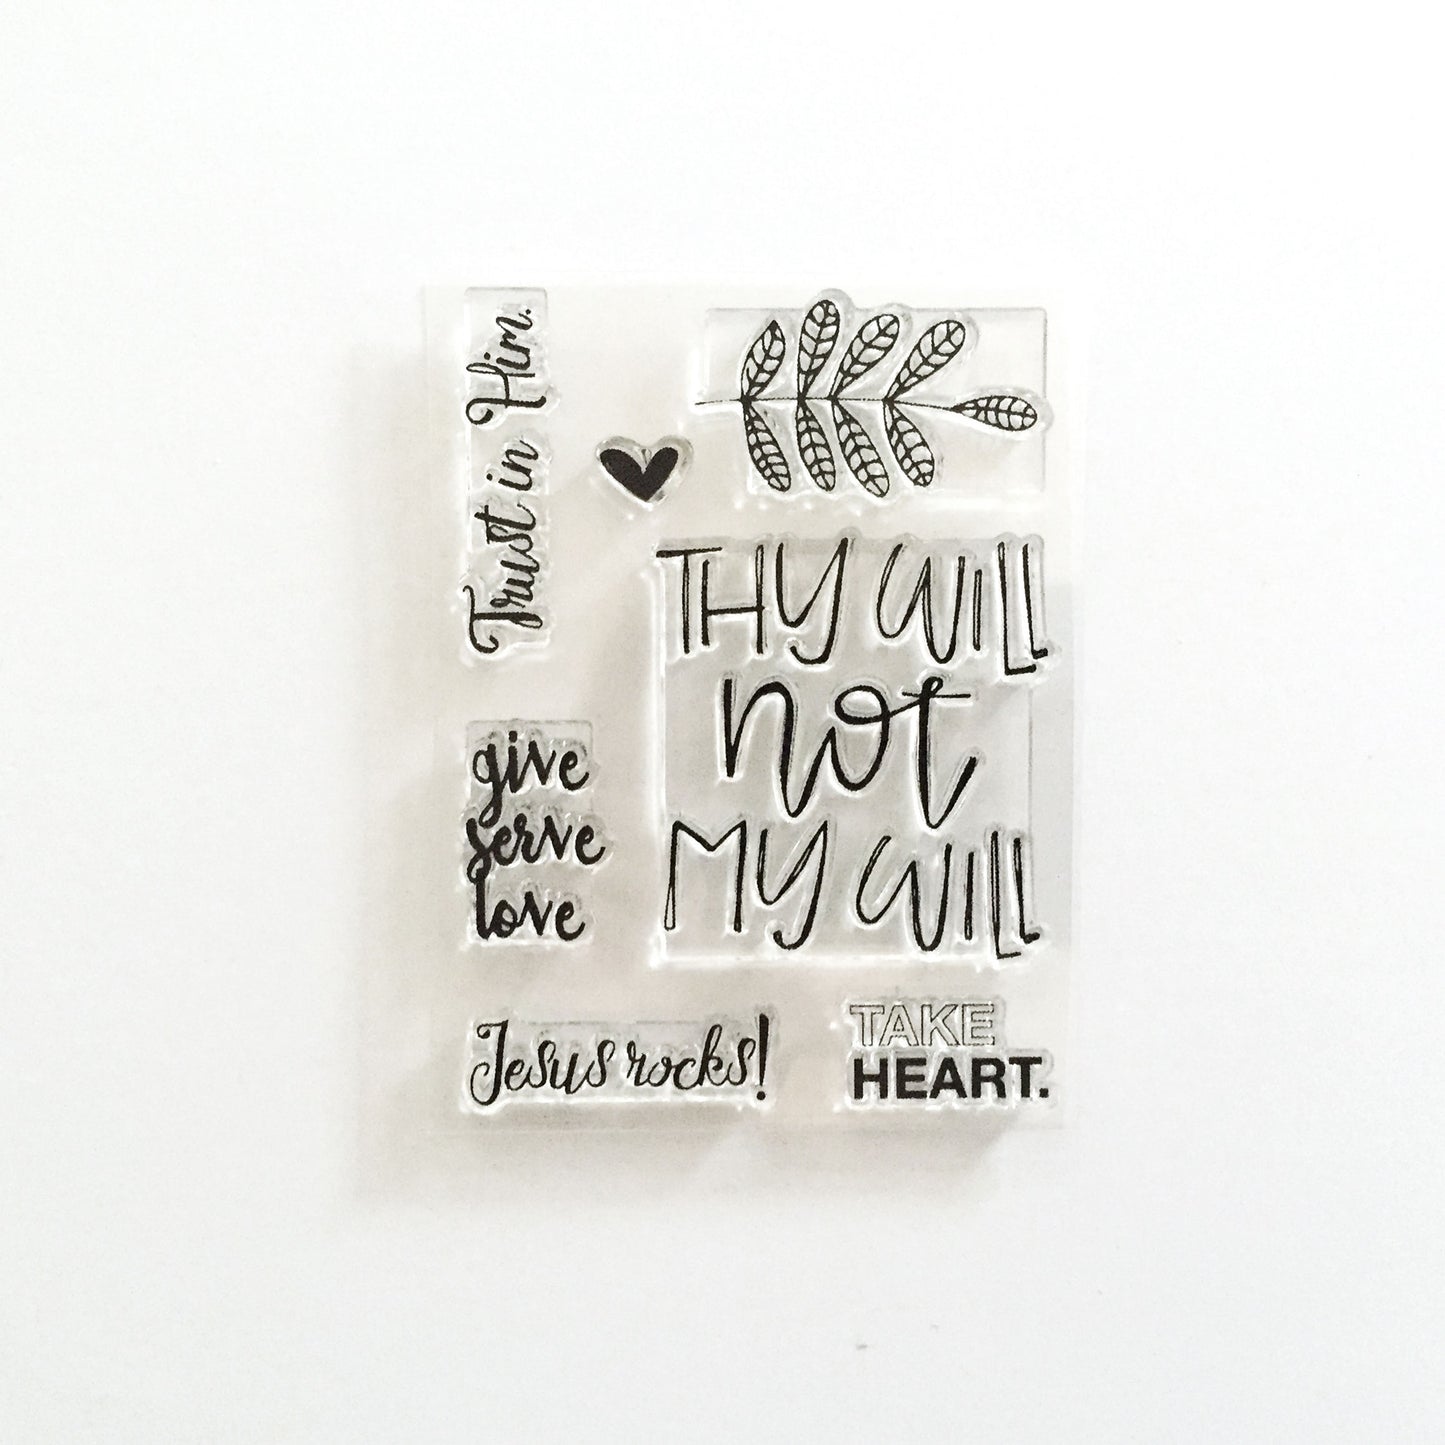 Trust in Him.
THY WILL
not
MY WILL
give
serve
love
Jesus rocks!
TAKE
HEART.